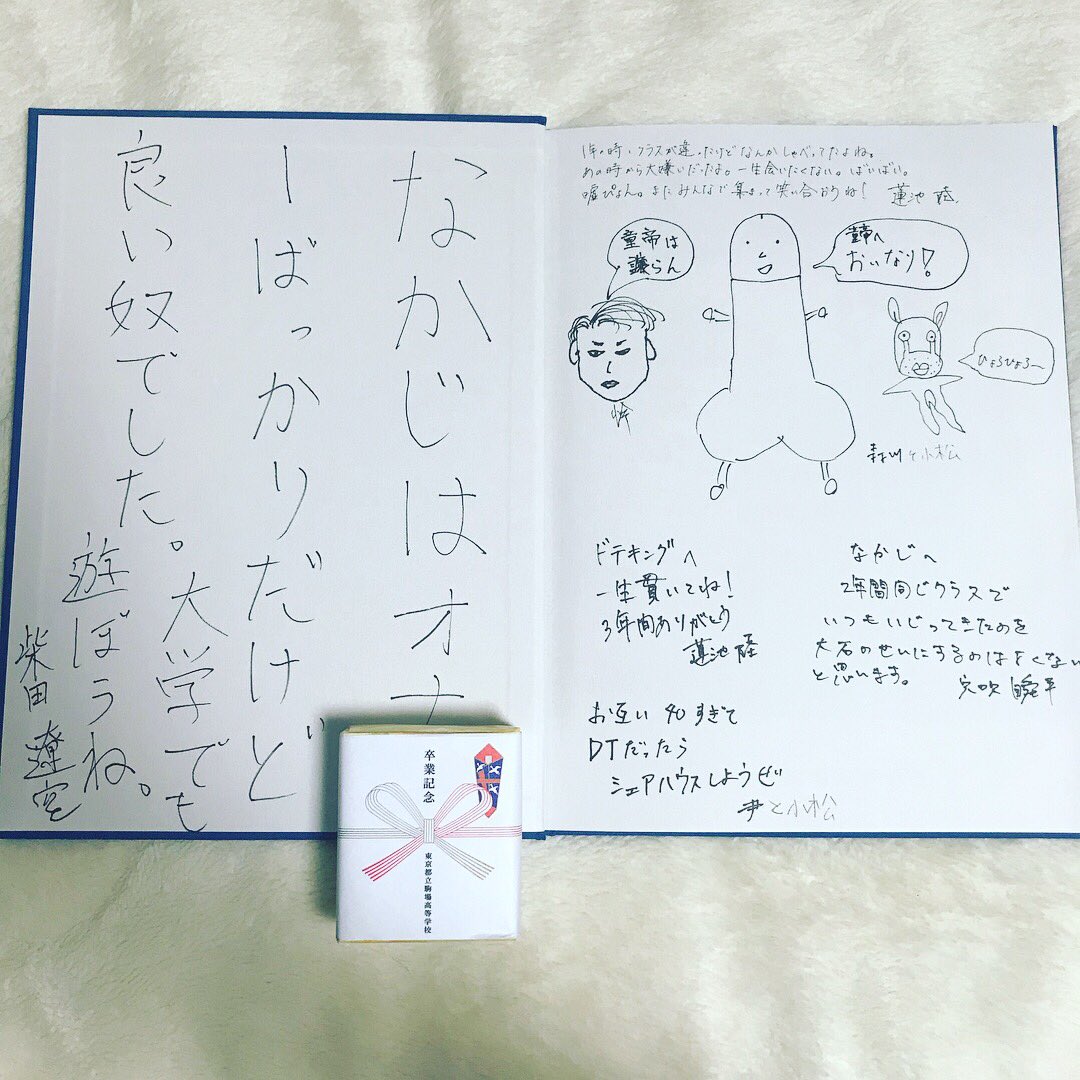 なかじはオナ
ーばっかりだけど
良い奴でした。大学でも
遊ぼうね。
柴田
1年の時、クラスが違ったけどなんかしゃべってたよね。
あの時から大嫌いだったよ。一生会いたくない。ばいばい。
嘘ぴょん。またみんなで集まって笑い合おうね！ 蓮池 陸
童帝は
譲らん
童帝へ
おいなり！
ひょろひょろ〜
と小松
ドテキングへ
一生貫いてね！
3年間ありがとう
蓮池 陸
なかじへ
2年間同じクラスで
いつもいじってきたのを
大石のせいにするのはよくない
と思います。 穴吹
お互い40すぎて
DTだったら
シェアハウスしようぜ
と小松
卒業記念
東京都立駒場高等学校